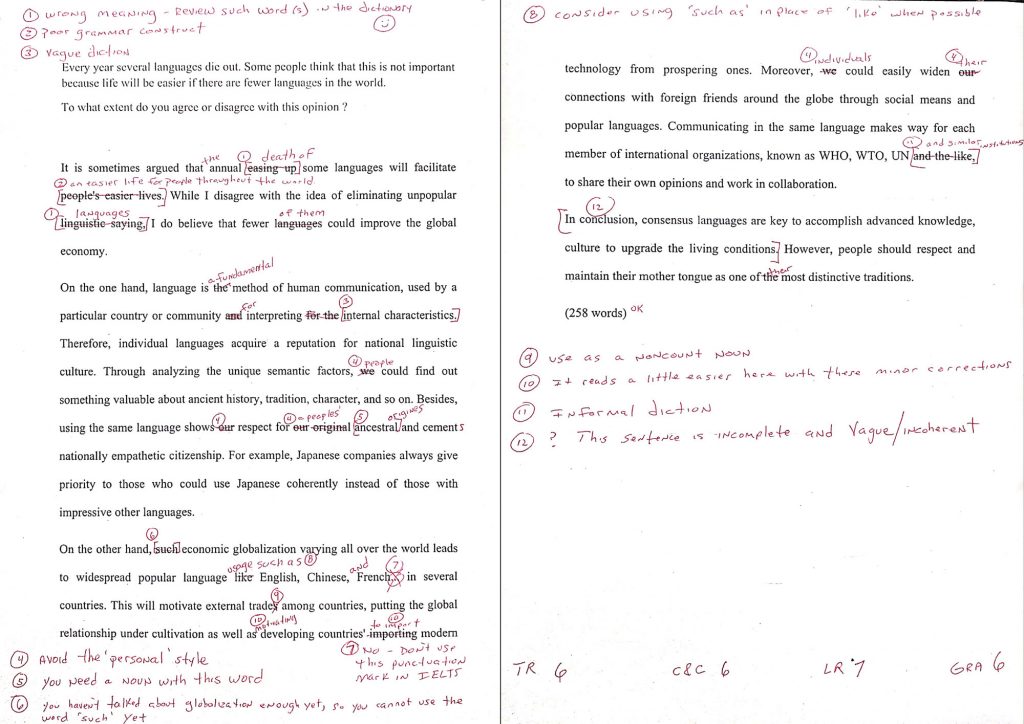 ① wrong meaning - Review such word(s) in the dictionary
② Poor grammar construct
③ Vague diction
Every year several languages die out. Some people think that this is not important
because life will be easier if there are fewer languages in the world.
To what extent do you agree or disagree with this opinion ?
the ① death of
It is sometimes argued that annual [easing up] some languages will facilitate
② an easier life for people throughout the world
[people's easier lives.] While I disagree with the idea of eliminating unpopular
① languages of them
[linguistic saying,] I do believe that fewer languages could improve the global
economy.
a fundamental
On the one hand, language is the method of human communication, used by a
for ③
particular country or community and interpreting for the [internal characteristics.]
Therefore, individual languages acquire a reputation for national linguistic
④ people
culture. Through analyzing the unique semantic factors, we could find out
something valuable about ancient history, tradition, character, and so on. Besides,
④ ④ a peoples' ⑤ origines
using the same language shows our respect for our original [ancestral/and cements
nationally empathetic citizenship. For example, Japanese companies always give
priority to those who could use Japanese coherently instead of those with
impressive other languages.
⑥
On the other hand, [such] economic globalization varying all over the world leads
usage such as ⑧ and ⑦
to widespread popular language like English, Chinese, French, in several
⑨
countries. This will motivate external trades among countries, putting the global
⑩ motivating ⑩ to import
relationship under cultivation as well as developing countries' importing modern
④ Avoid the 'personal' style
⑤ You need a noun with this word
⑥ you haven't talked about globalization enough yet, so you cannot use the
word 'such' yet
⑦ No - Don't use
this punctuation
mark in IELTS
⑧ consider using 'such as' in place of 'like' when possible
④ individuals ④ their
technology from prospering ones. Moreover, we could easily widen our
connections with foreign friends around the globe through social means and
popular languages. Communicating in the same language makes way for each
⑪ and similar institutions
member of international organizations, known as WHO, WTO, UN [and the like,]
to share their own opinions and work in collaboration.
⑫
[In conclusion, consensus languages are key to accomplish advanced knowledge,
culture to upgrade the living conditions.] However, people should respect and
their
maintain their mother tongue as one of the most distinctive traditions.
(258 words) OK
⑨ use as a noncount noun
⑩ It reads a little easier here with these minor corrections
⑪ Informal diction
⑫ ? This sentence is incomplete and Vague/incoherent
TR 6 C&C 6 LR 7 GRA 6